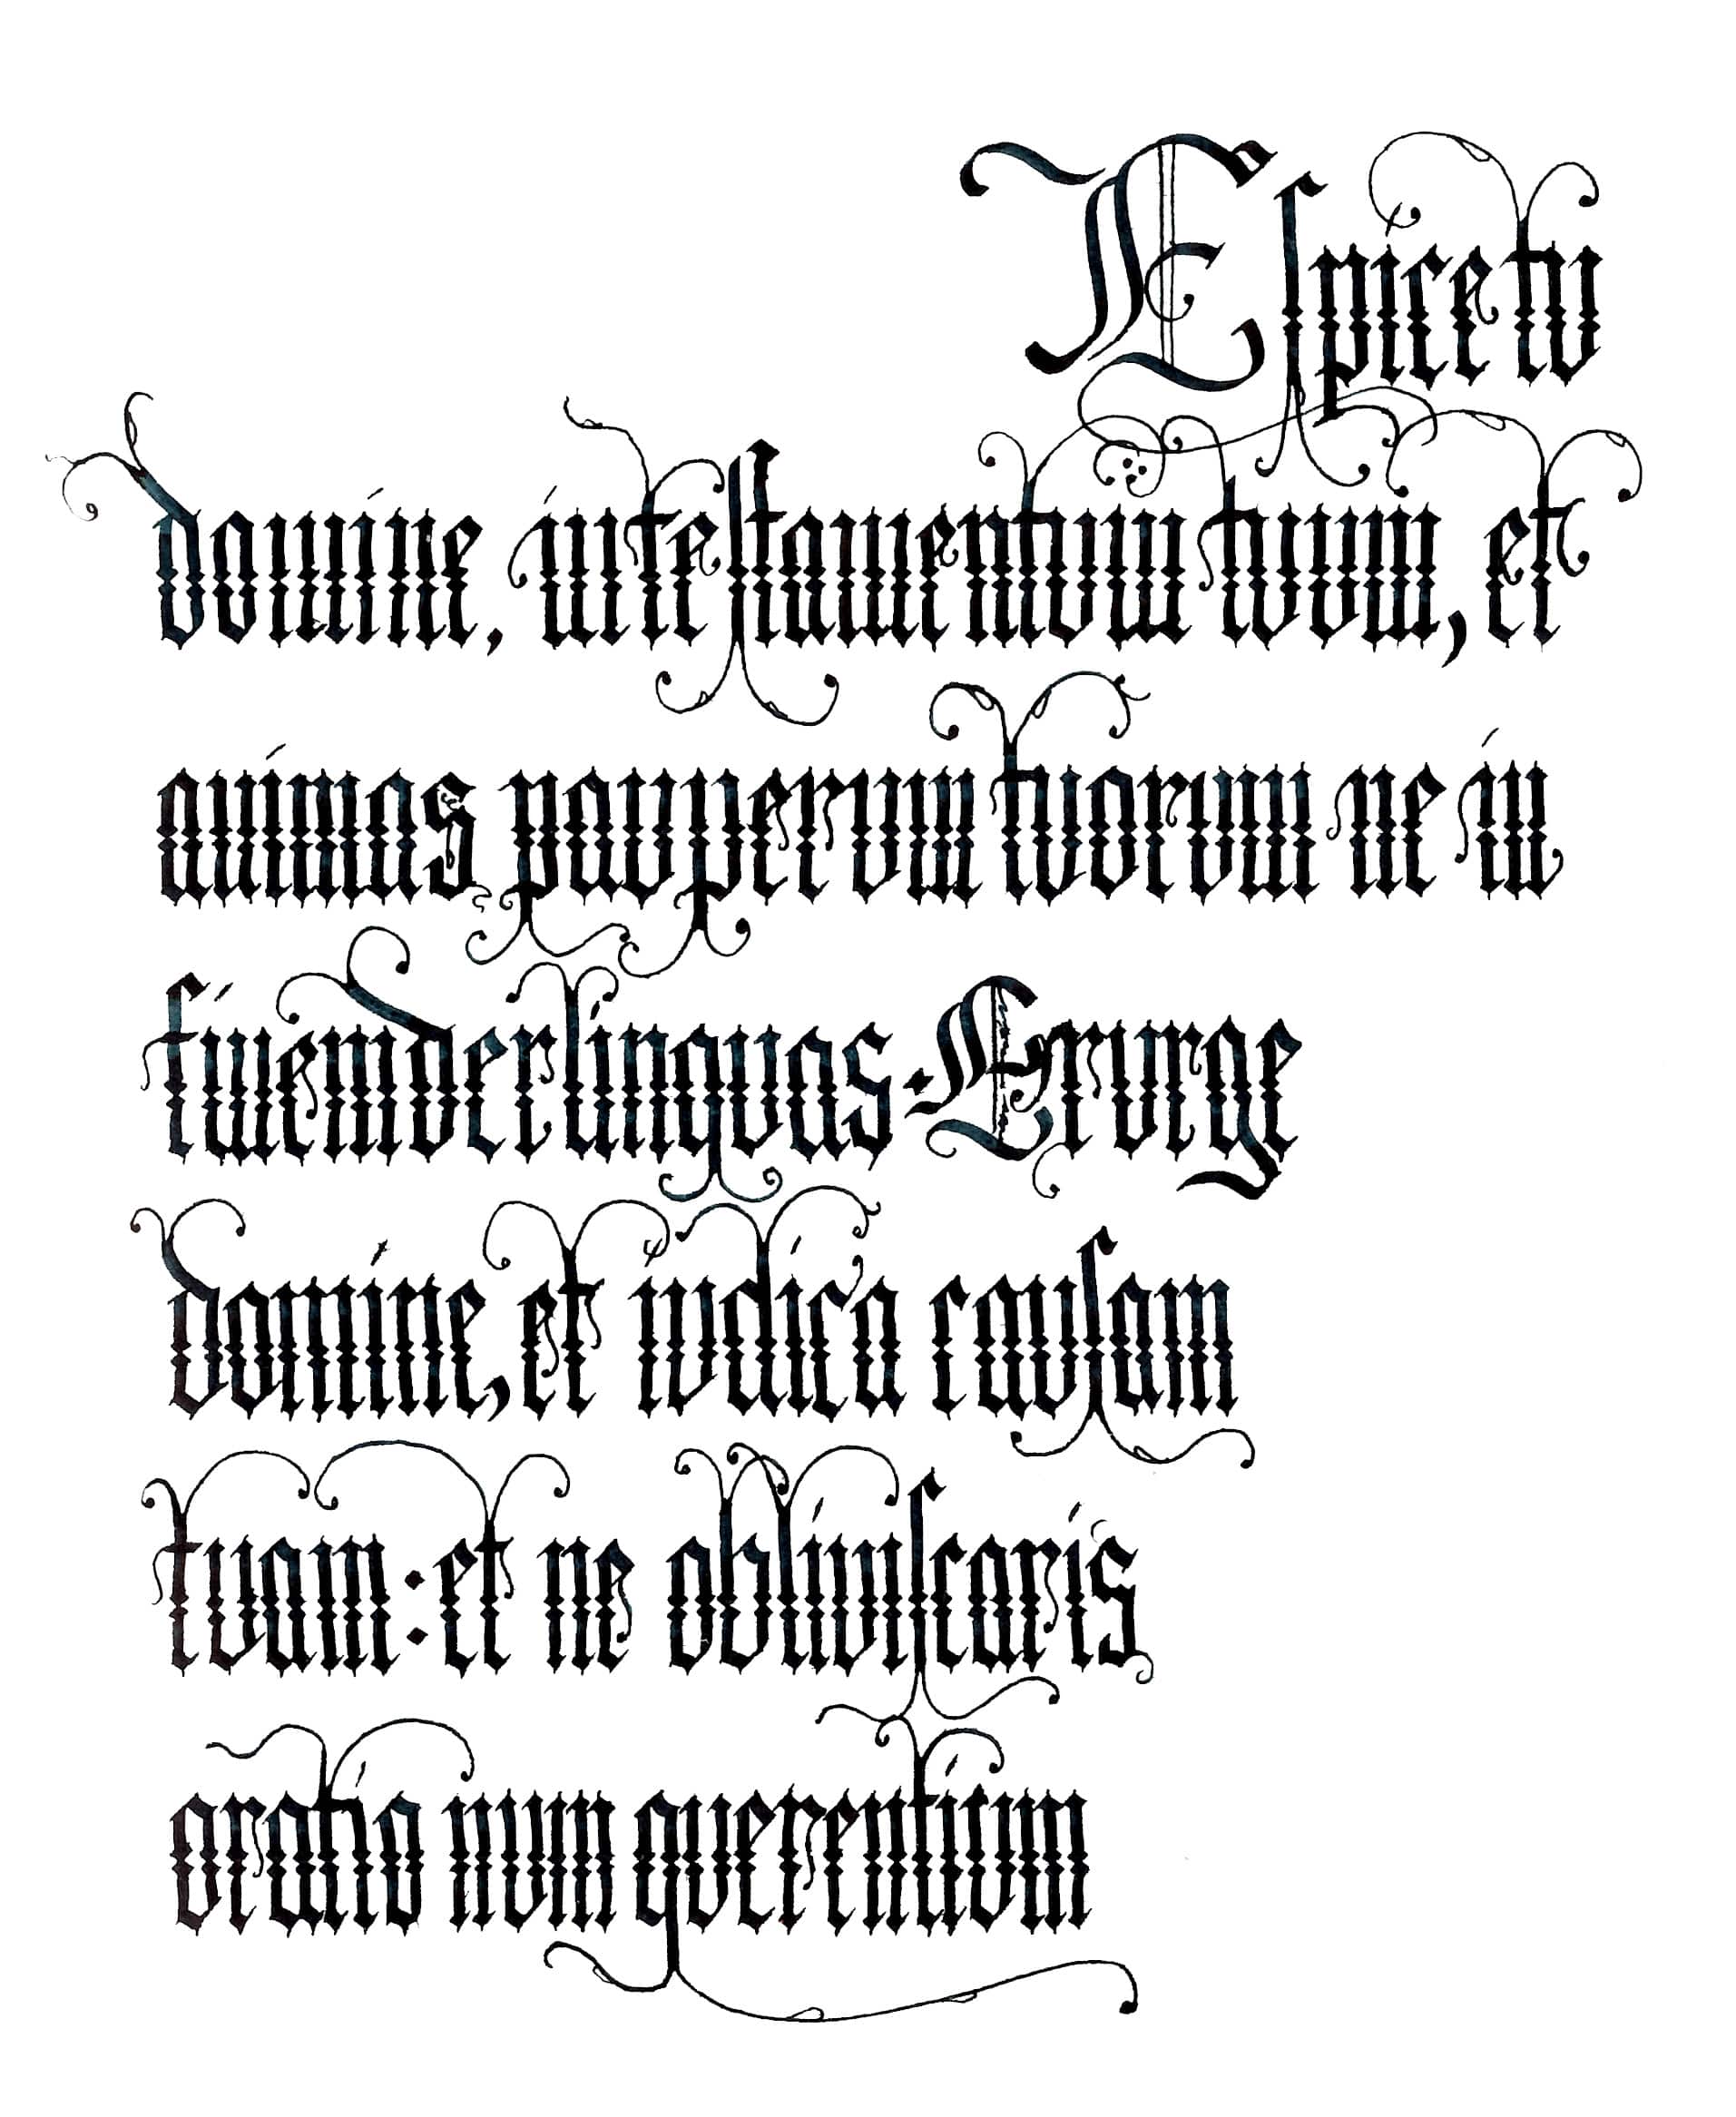 Espice tu
domine, in testamentum tuum, et
animas pauperum tuorum ne in
finem derlinquas. Exurge
domine, et iudica causam
tuam: et ne obliviscaris
oratio num querentium